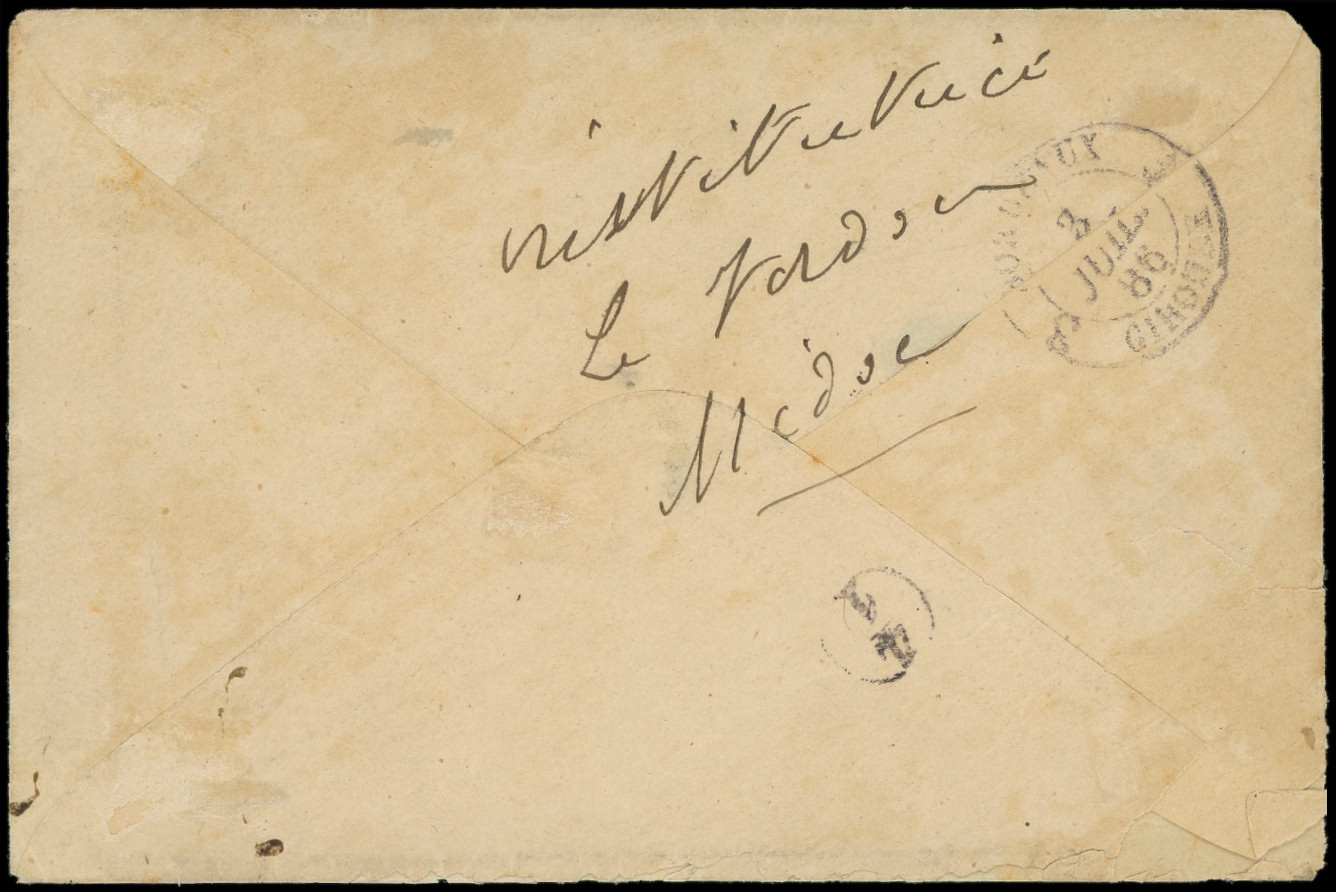 institutrice
Le Verdon
Médoc
BORDEAUX
3
JUIL.
86
GIRONDE